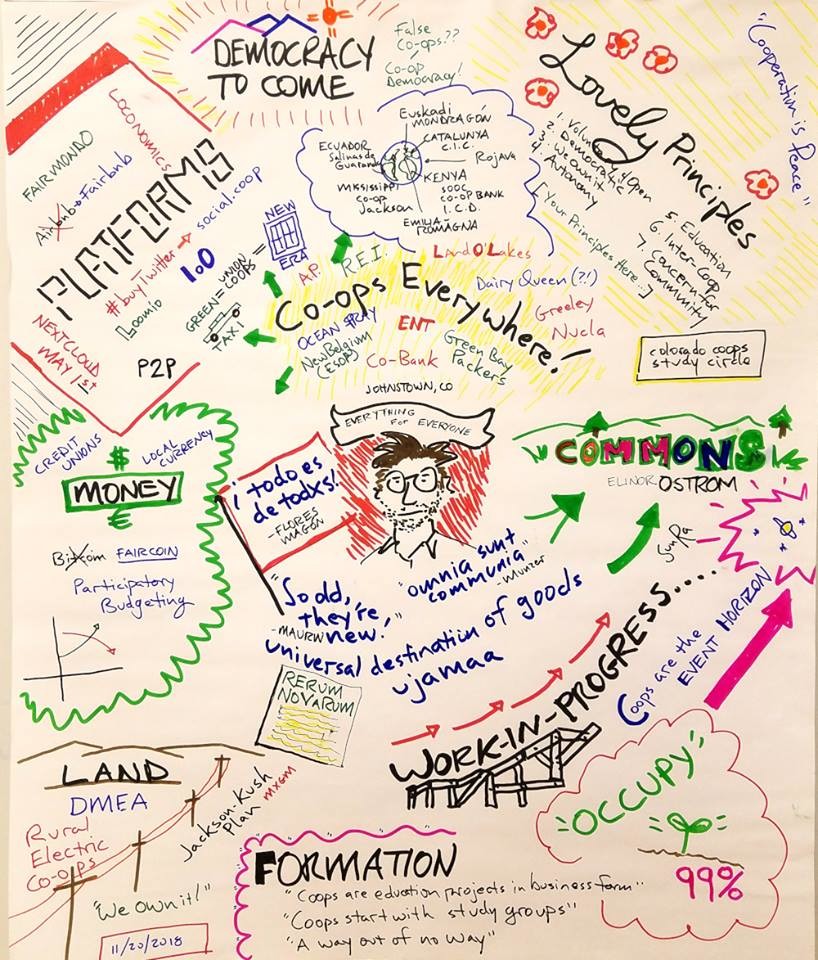 DEMOCRACY
TO COME
False
Co-ops??
Co-op
Democracy!
Lovely Principles
1. Volun
2. Democratic
3. We own it
4. Autonomy
y/Open
5. Education
6. Inter-Coop
7. Concern for
Community
[Your Principles Here...]
"Cooperation is Peace"
colorado coops
study circle
PLATFORMS
LOCONOMICS
FAIRMONDO
Airbnb → Fairbnb
#buyTwitter → social.coop
1.0
Loomio
NEXTCLOUD
MAY 1st
P2P
GREEN TAXI
= UNION
COOPS =
NEW
ERA
Euskadi
MONDRAGÓN
CATALUNYA
C.I.C.
Rojava
ECUADOR
Salinas de
Guaranda
KENYA
5000
CO-OP BANK
I.C.D.
MISSISSIPPI
CO-OP
Jackson
EMILIA
ROMAGNA
Co-ops Everywhere!
A.P.
R.E.I.
Land O'Lakes
Dairy Queen (?!)
OCEAN SPRAY
ENT
Greeley
Nucla
New Belgium
(ESOP)
Co-Bank
Green Bay
Packers
JOHNSTOWN, CO
EVERYTHING
FOR EVERYONE
CREDIT
UNIONS
$
LOCAL
CURRENCY
MONEY
€
Bitcoin FAIRCOIN
Participatory
Budgeting
¡todo es
de todxs!
-FLORES
MAGÓN
"omnia sunt
communia"
-Munzer
"So old,
they're
new."
-MAURIN
universal destination of goods
ujamaa
RERUM
NOVARUM
COMMONS
ELINOR OSTROM
Sun Ra
WORK-IN-PROGRESS....
Coops are the
EVENT HORIZON
LAND
DMEA
Rural
Electric
Co-ops
Jackson-Kush
Plan
MXGM
"We own it!"
11/20/2018
FORMATION
"Coops are edcation projects in business form"
"Coops start with study groups"
"A way out of no way"
OCCUPY
99%